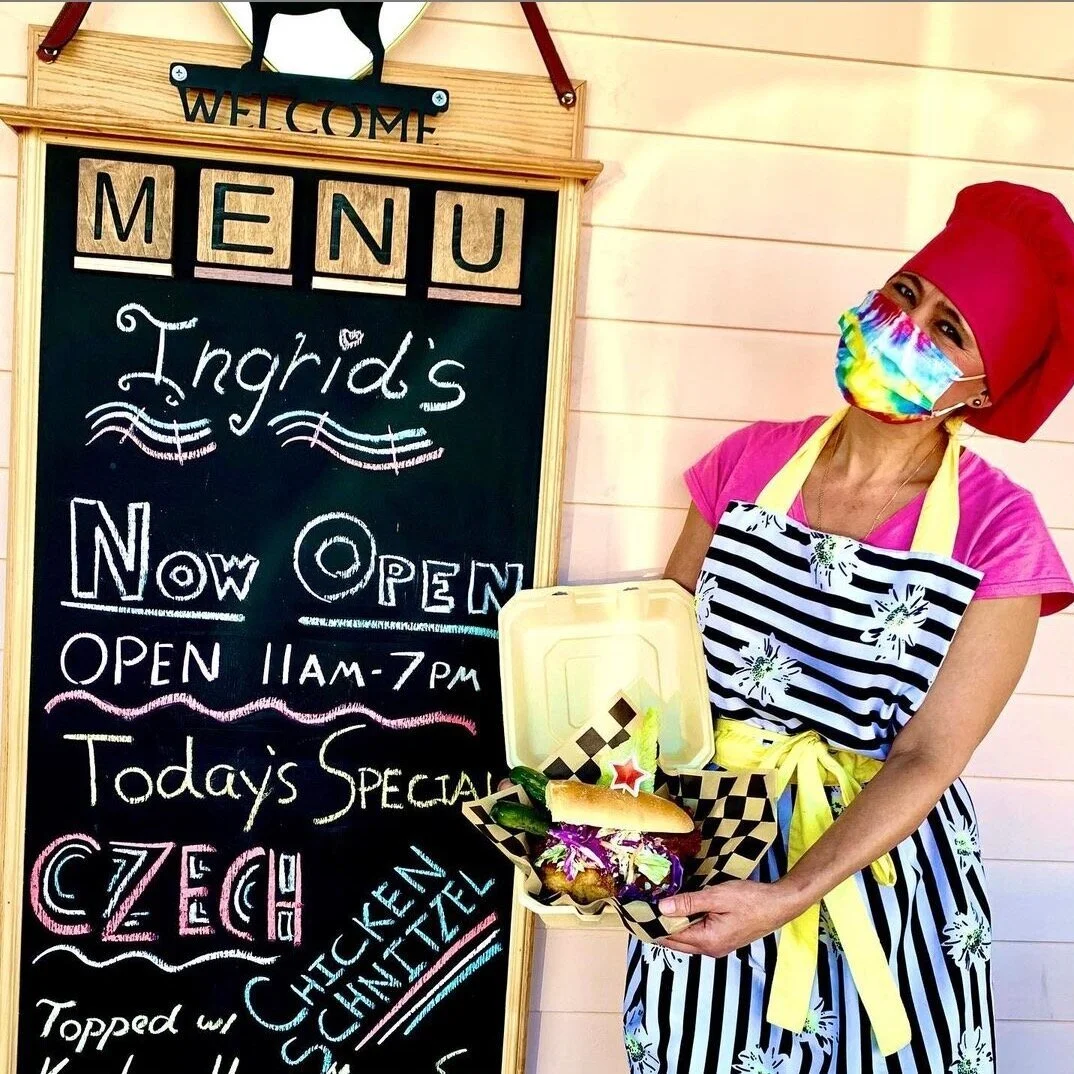 WELCOME
MENU
Ingrid's
Now OPEN
OPEN 11AM-7PM
Today's SPECIAL
CZECH
CHICKEN
SCHNITZEL
Topped w/